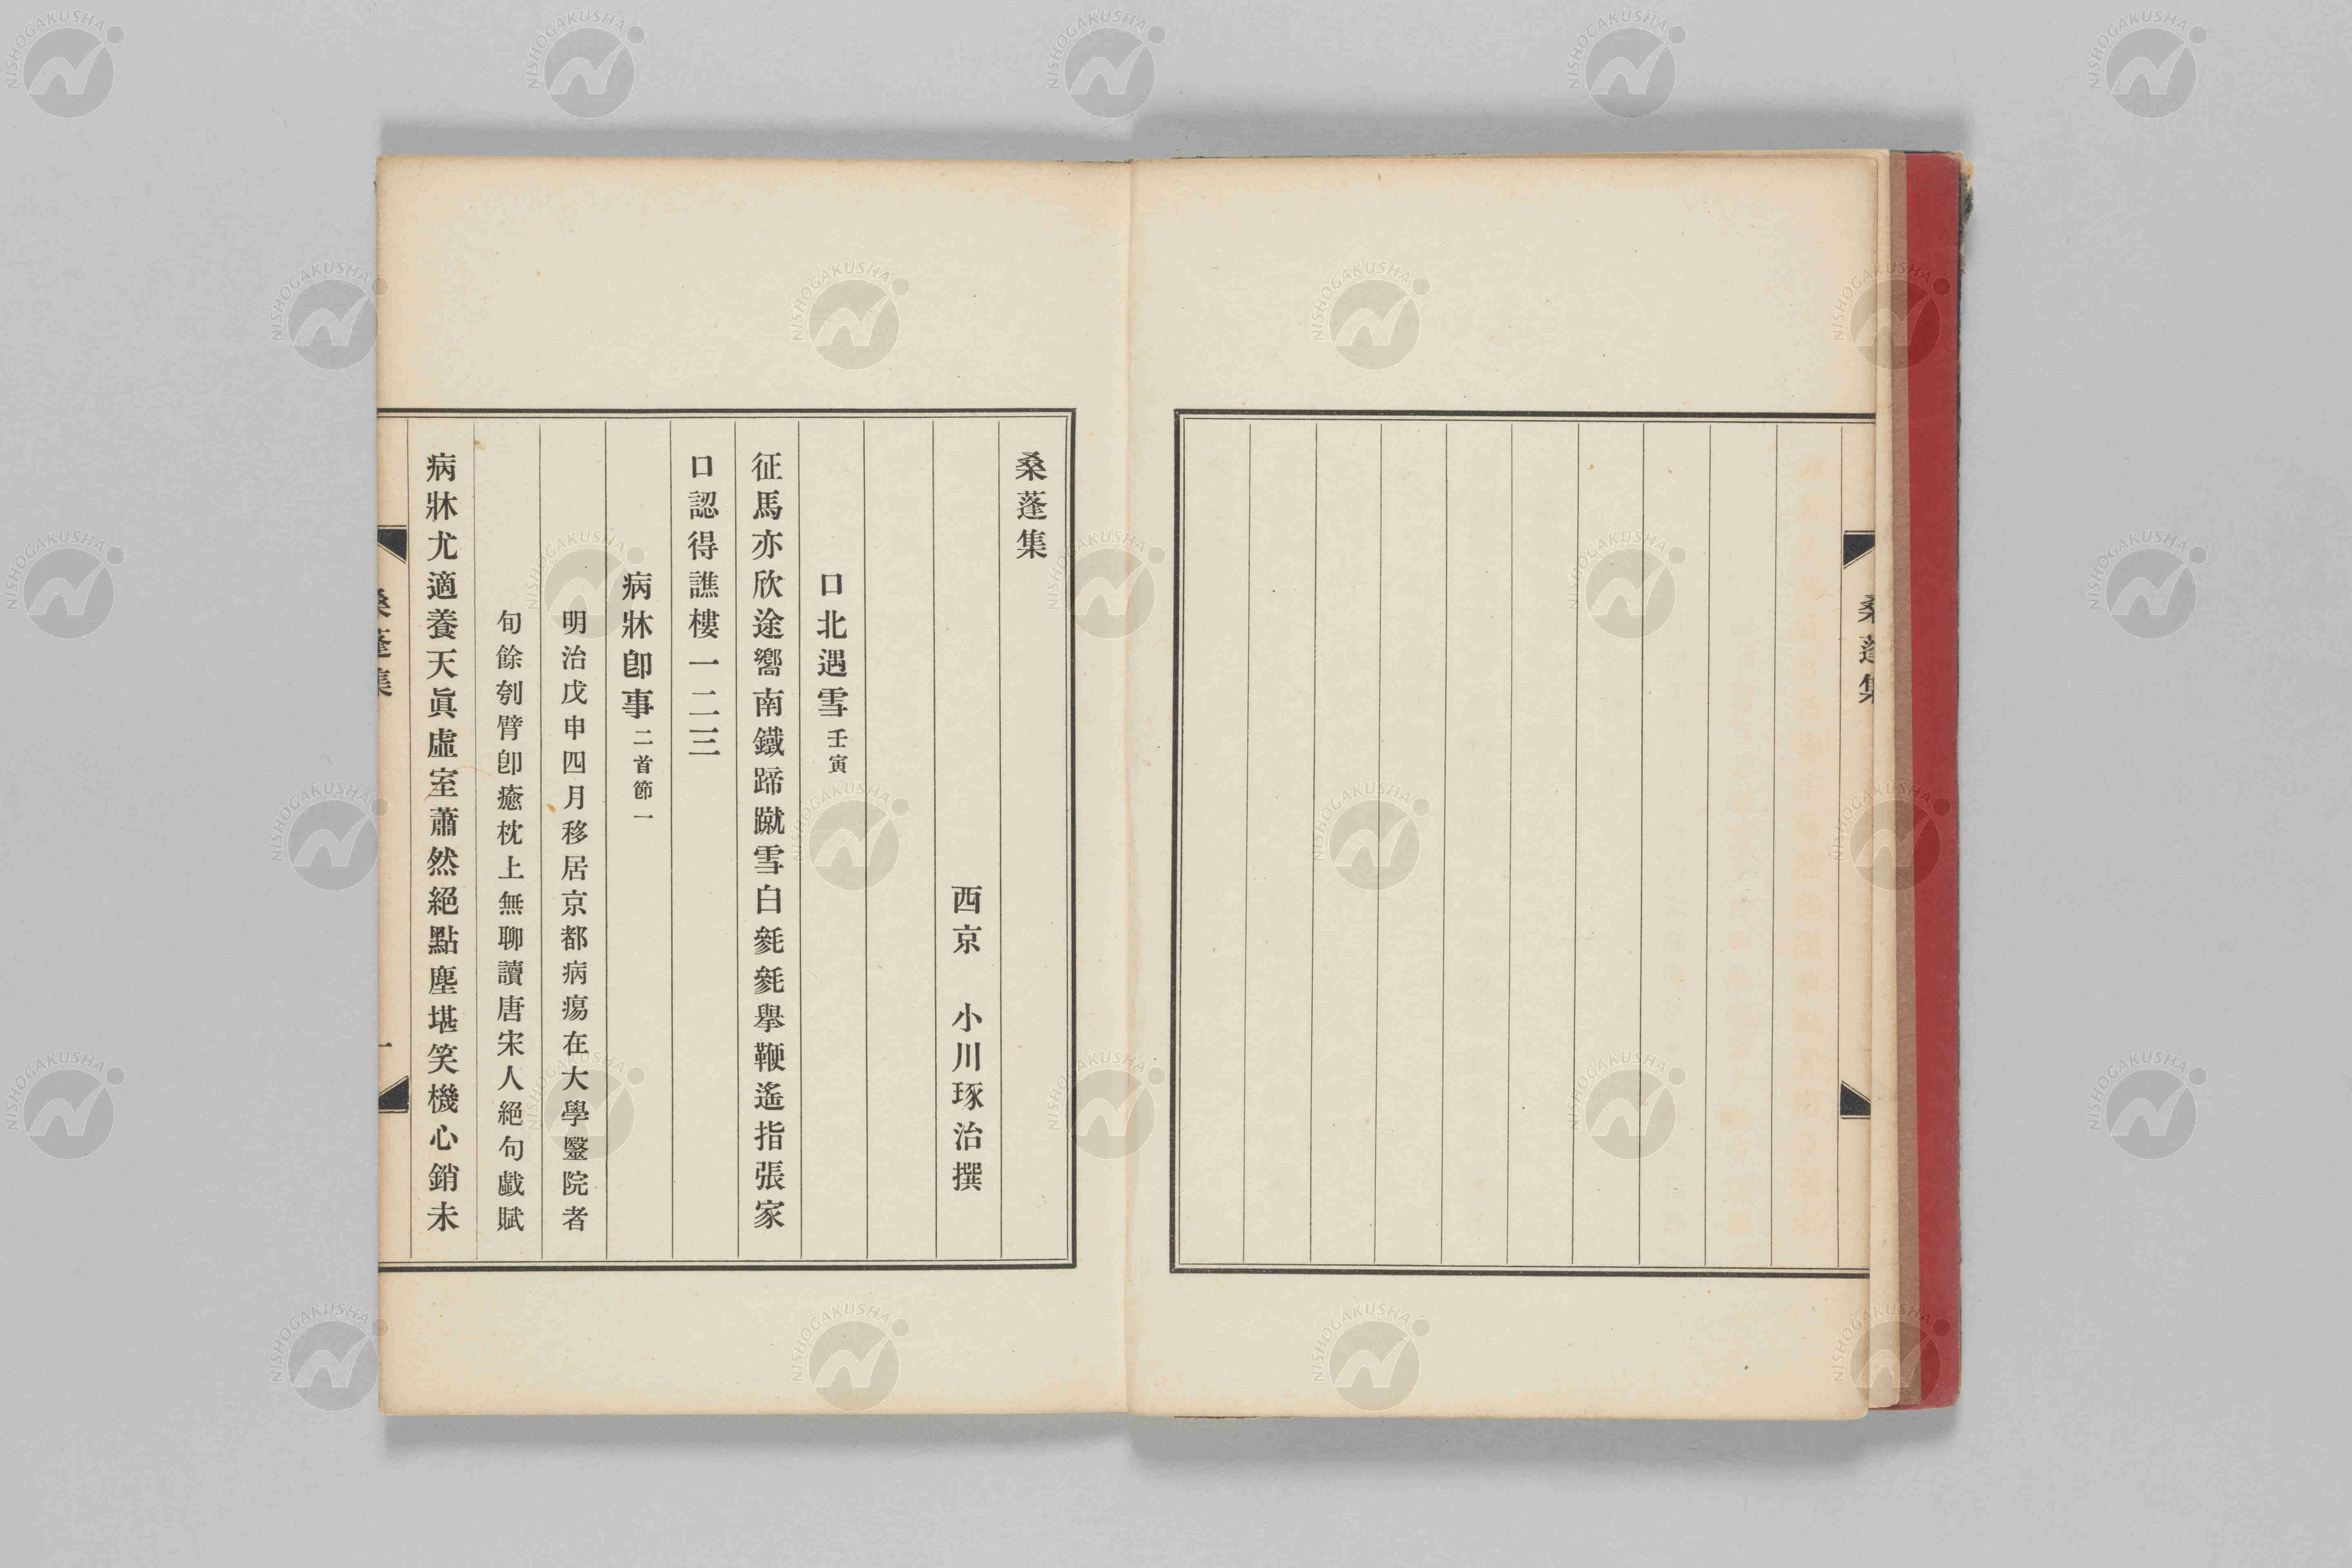 桑蓬集
桑蓬集
西京　小川琢治撰
口北遇雪壬寅
征馬亦欣途嚮南鐵蹄蹴雪白毿毿擧鞭遙指張家
口認得譙樓一二三
病牀卽事二首節一
明治戊申四月移居京都病瘍在大學醫院者
旬餘刳臂卽癒枕上無聊讀唐宋人絕句戲賦
病牀尤適養天眞虛室蕭然絕點塵堪笑機心銷未
桑蓬集
一
NISHOGAKUSHA